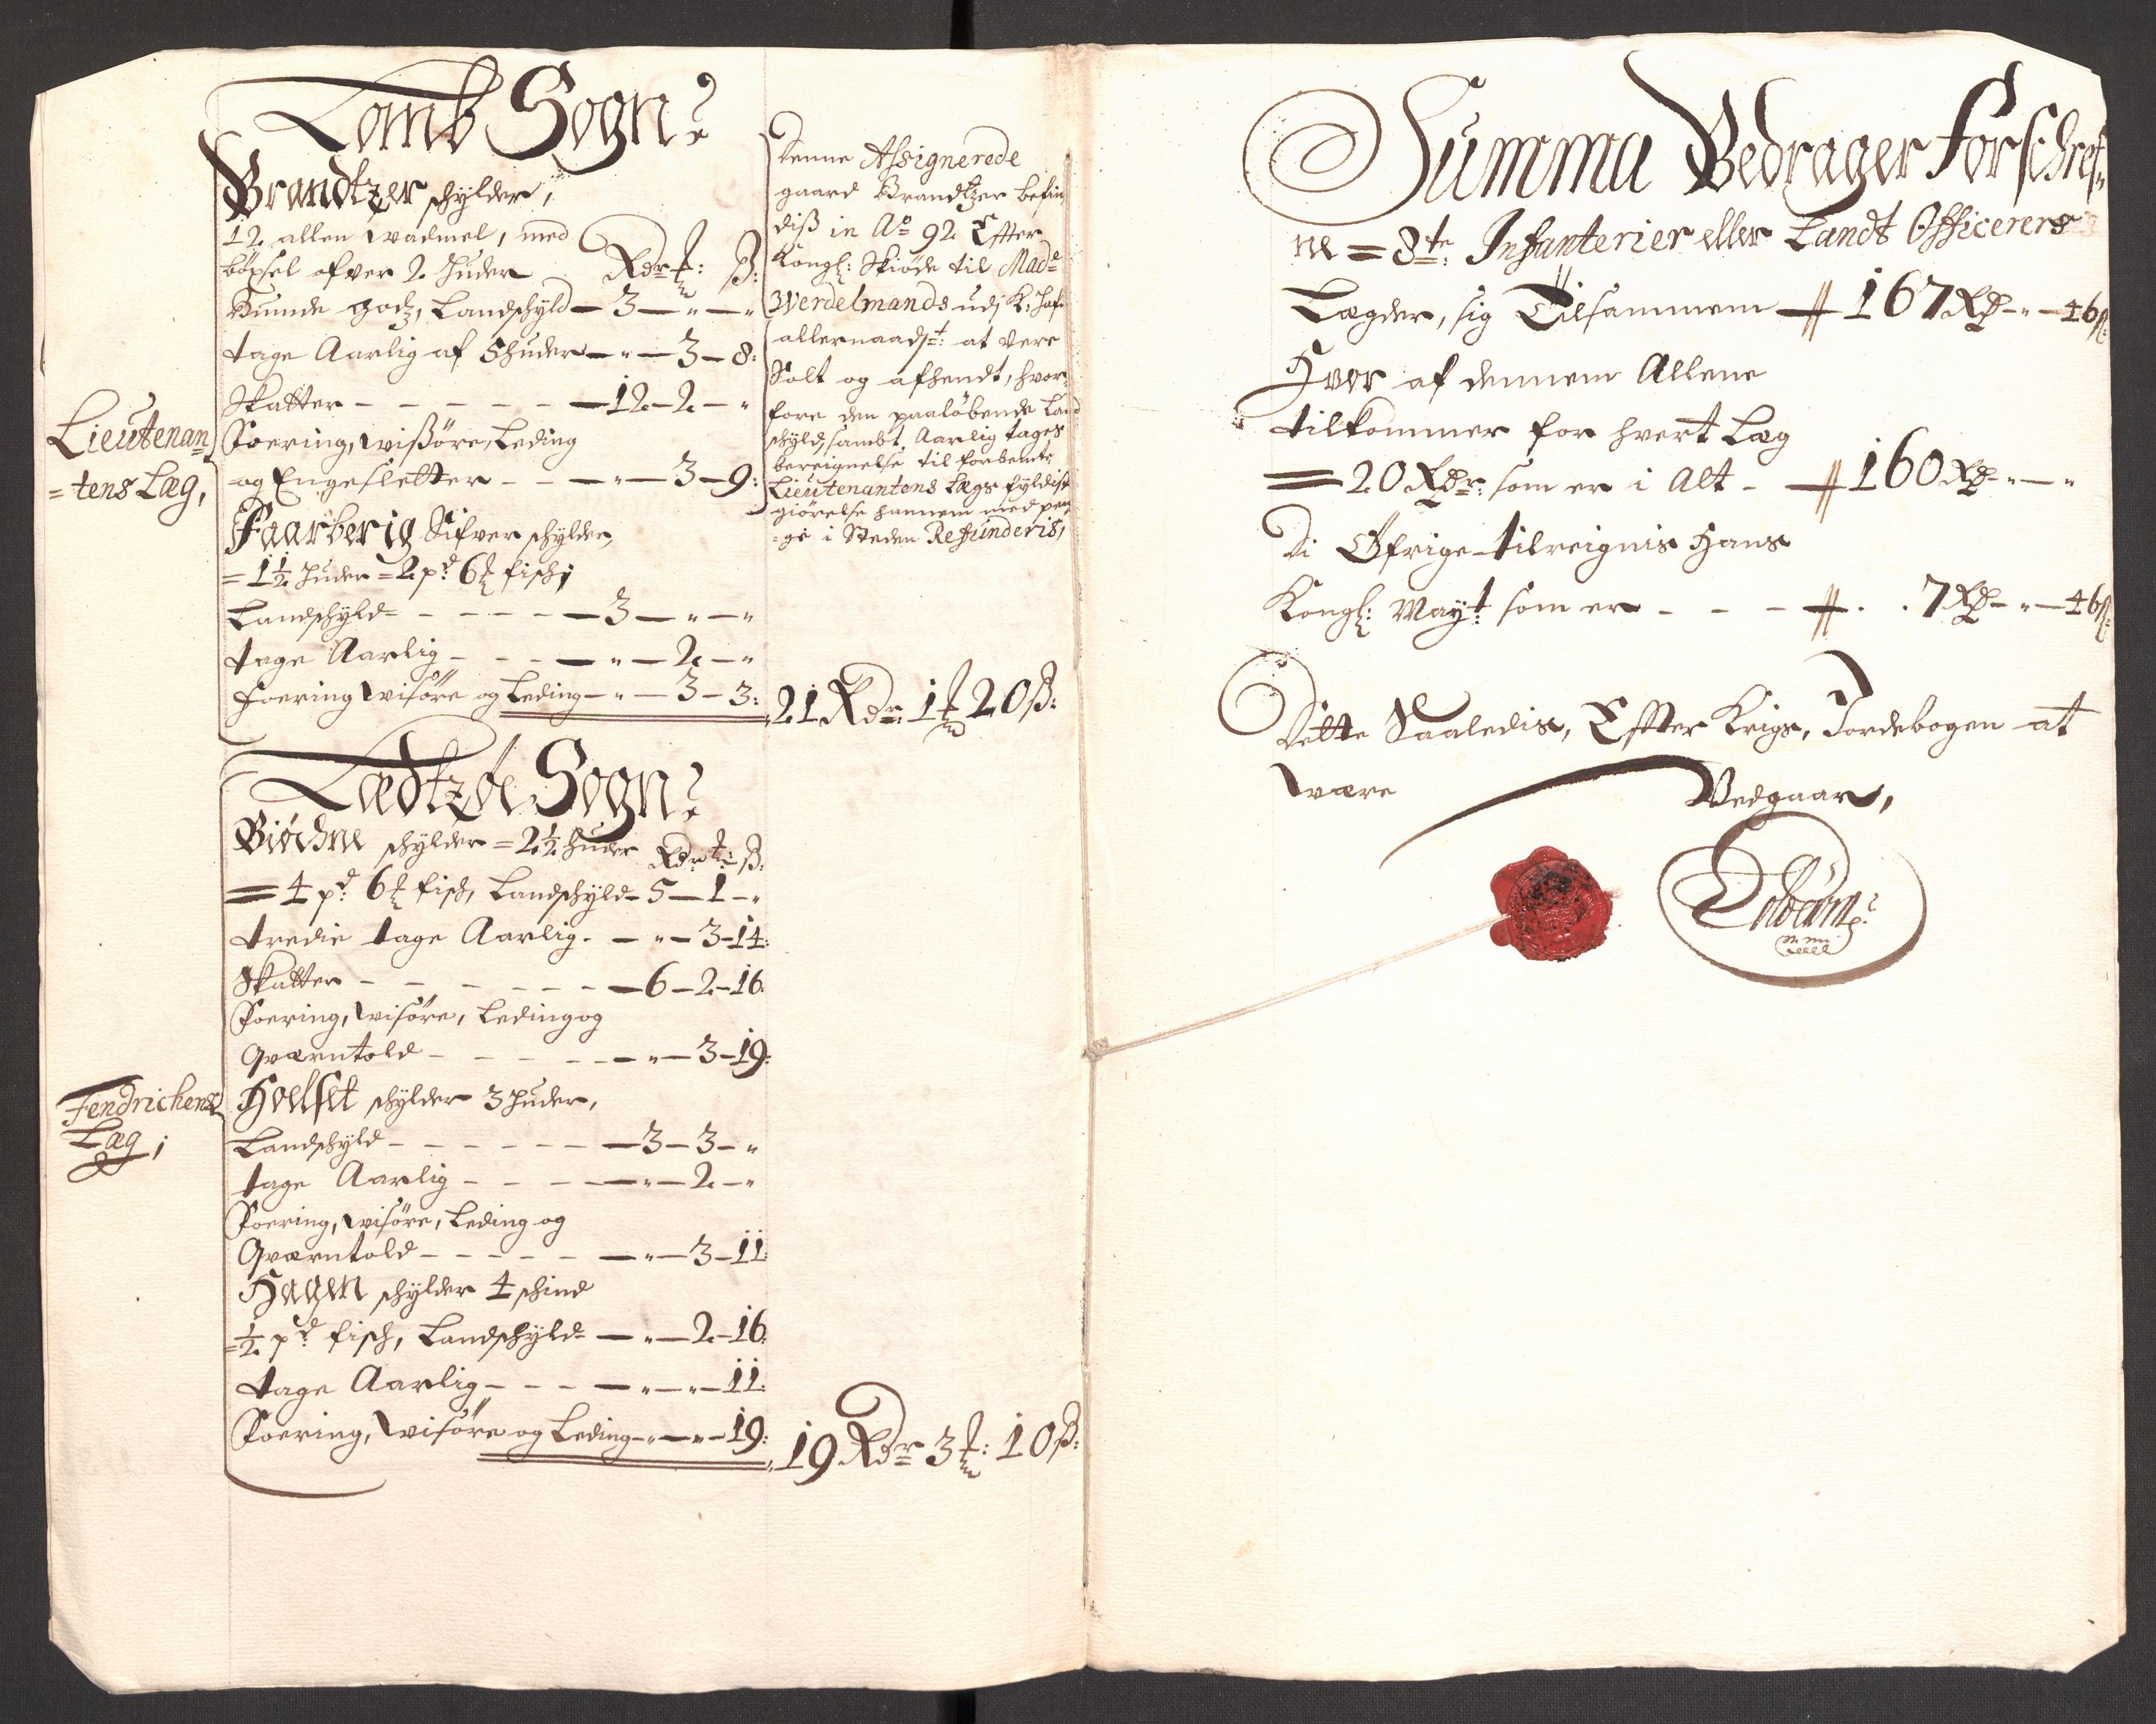 Lomb Sogn
Brandtzer schylder,
12 allen vadmel, med
böxsel ofver 2 Huder Rdr ß:
Kunde godz, Landschyld — 3 — " — "
tage Aarlig af 5 Huder — " — 3 — 8:
Skatter — 12 — 2 — "
Foering, wißöre, Leding
og Engesletter — " — 3 — 9:
Lieutenan=
=tens Læg,
Faarberig Sifver schylder
= 1½ Huder = 2 pd: 6 fisch;
Landschyld — 3 — " — "
tage Aarlig — " — 2 — "
Foering wisöre og Leding — " — 3 — 3:
Denne Assignerede
gaard Brandtzer befin
diß in Ao 92 Effter
Kongl: Skiöde til Made
Werdelmands udj K: Haf:
allernaadst: at vere
Solt og afhendt, hvor
fore den paalöbende Land
schyld, sambt, Aarlig tages
bereignelse til forbemte
Lieutenantens Lægs fyldist
giörelse hannem med pen
=ge i Steden Refunderis,
21 Rdr: 1 20 ß:
Lædtzöe Sogn
Biöchne schylder = 2½ Huder Rdr ß:
= 4 pd: 6 fisch, Landschyld — 5 — 1 — "
tredie tage Aarlig — " — 3 — 14:
Skatter — 6 — 2 — 16:
Foering, wisöre, Leding og
Qværntold — " — 3 — 19:
Fendrichens
Læg;
Hoelset schylder 3 Huder,
Landschyld — 3 — 3 — "
tage Aarlig — " — 2 — "
Foering, wisöre, Leding og
Qværntold — " — 3 — 11:
Hagen schylder 4 schind
= ½ pd: fisch, Landschyld — " — 2 — 16:
tage Aarlig — " — " — 11:
Foering, wisöre og Leding — " — " — 19:
19 Rdr 3 10 ß:
Summa Bedrager forschref=
ne = 8te: Infanterier eller Landt Officerers
Lægder, sig Tilsammem — 167 Rd — " — 46 ß:
Hvor af dennem Allene
tilkommer for hvert Læg
= 20 Rdr: som er i Alt — 160 Rd — " — "
Di Öfrige tilreignis Hans
Kongl: Mayt: som er — 7 Rd — " — 46 ß:
Dette Saaledis, Effter Krigs, Jordebogen at
være Vedgaar,